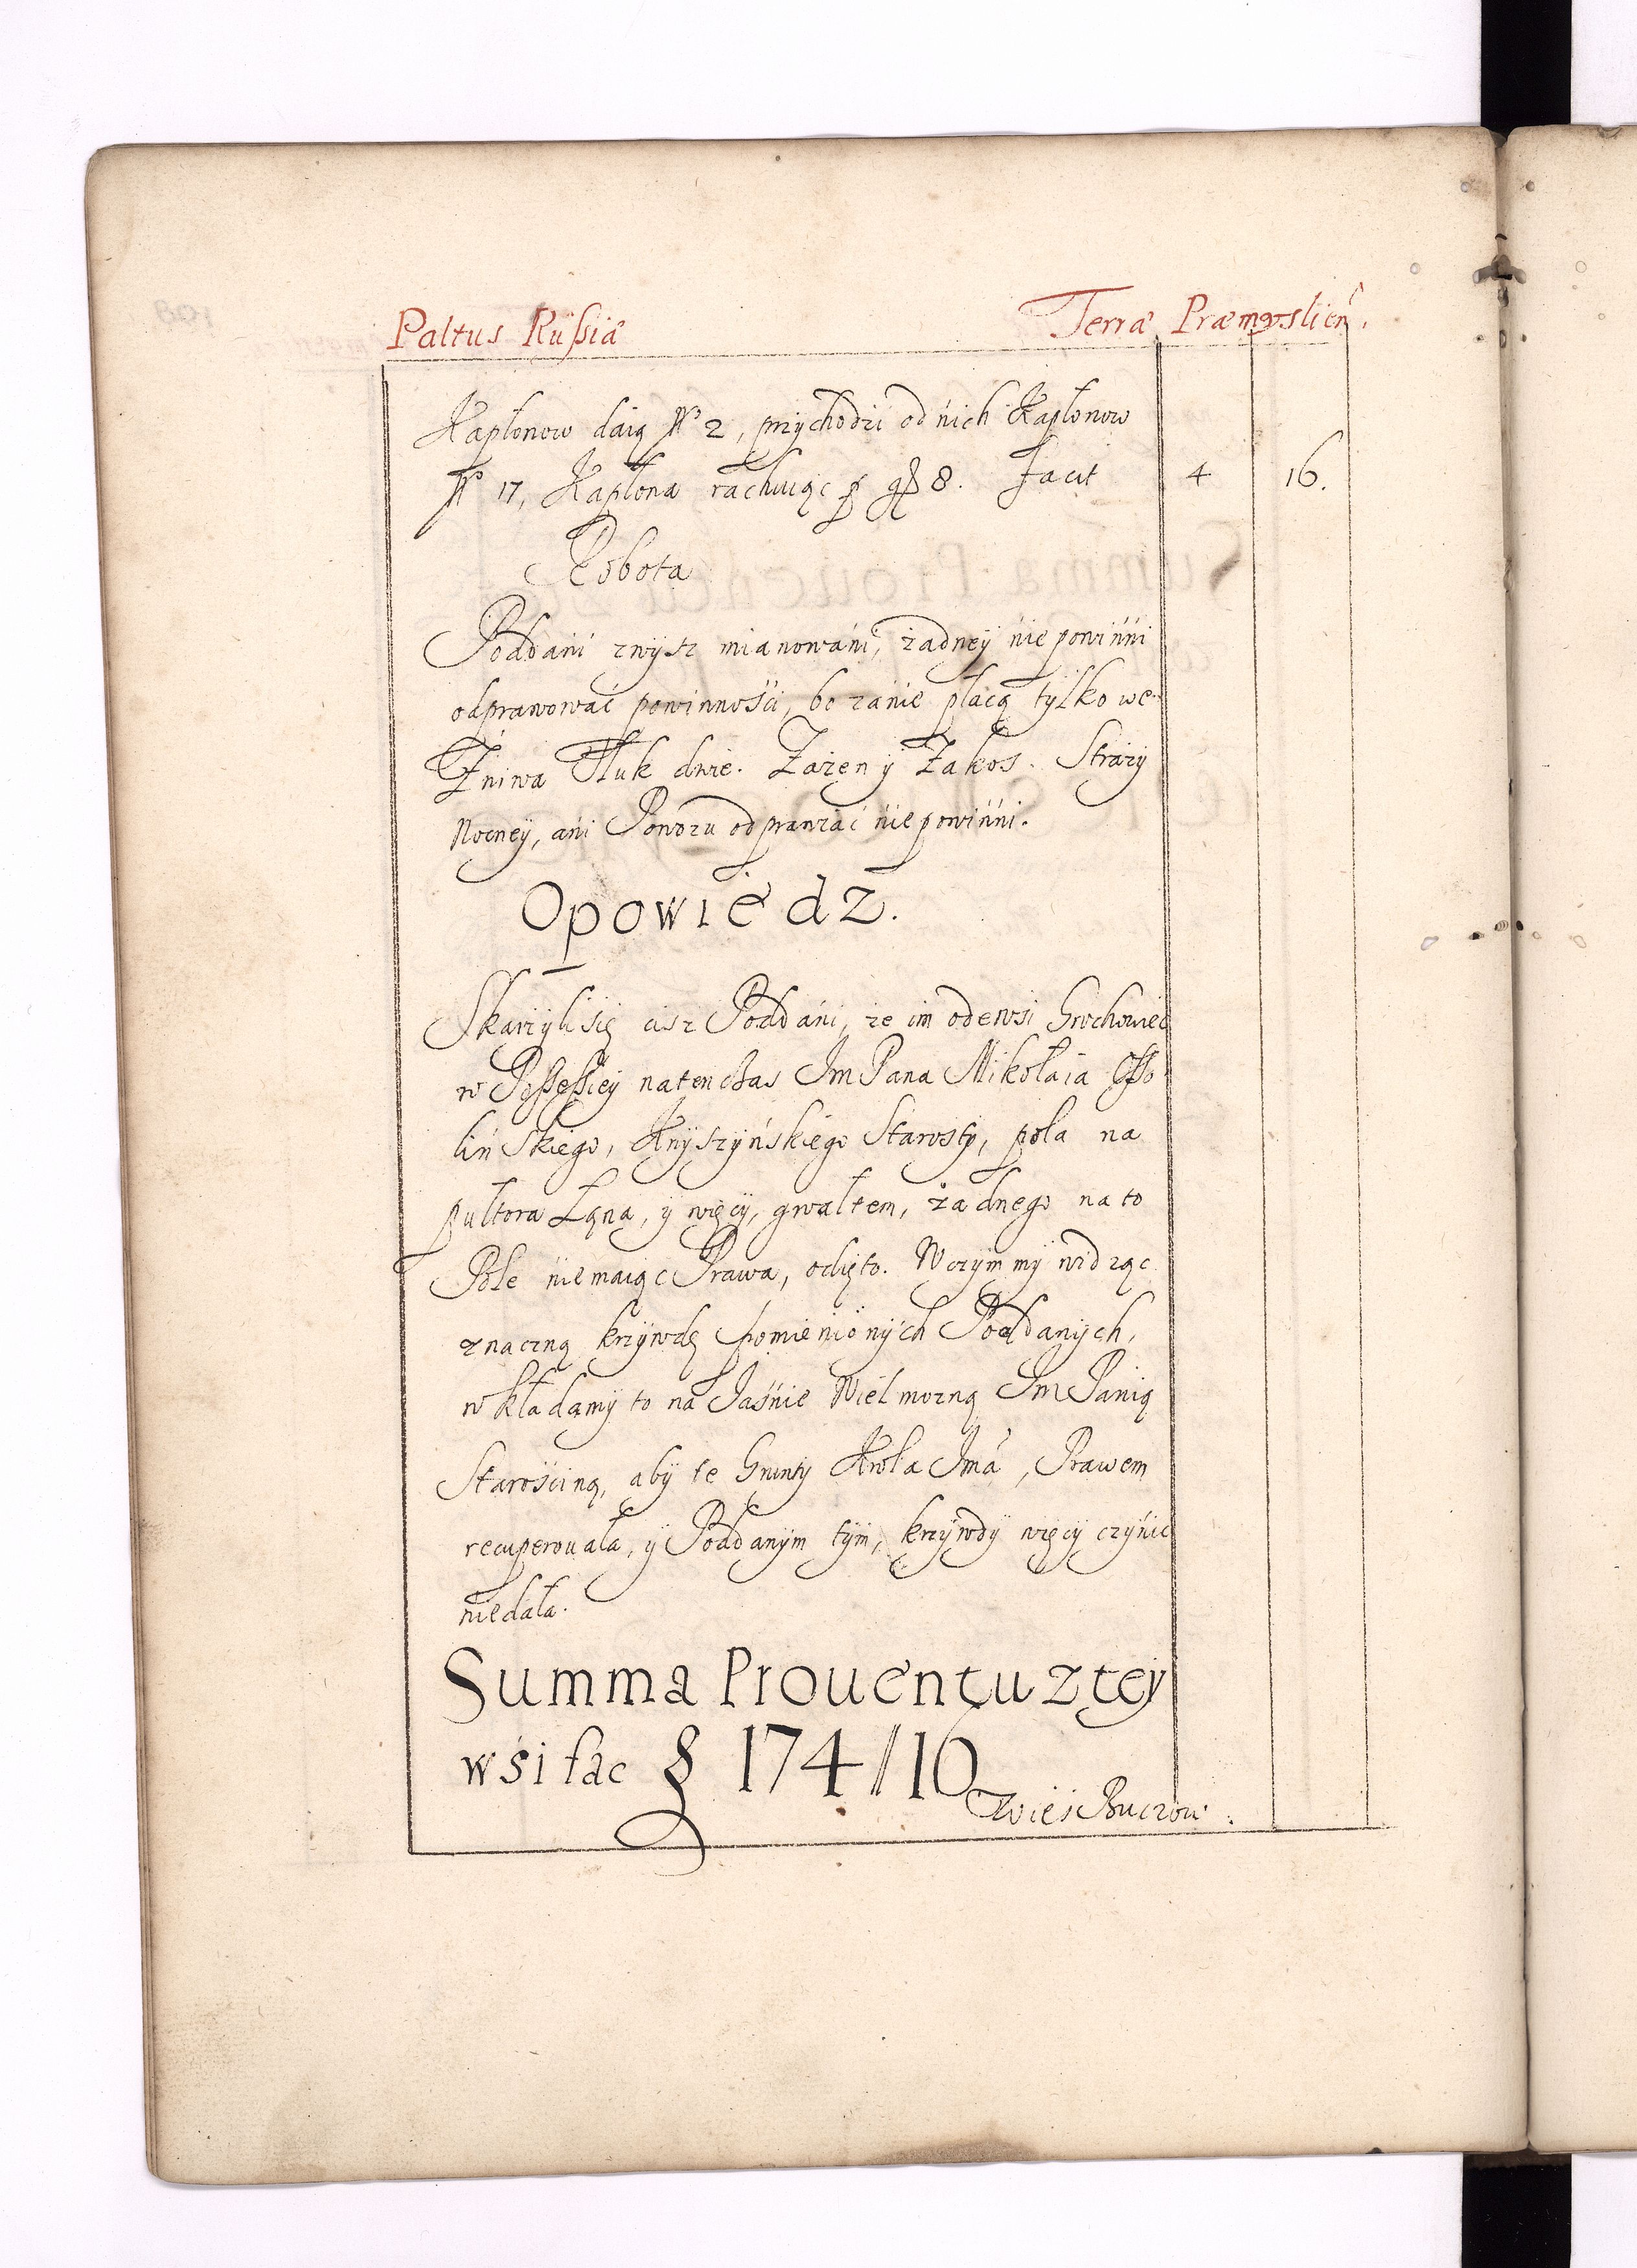 Paltus Rußiæ Terræ Præmysliēn.
Kapłonow daią Nº 2, przychodzi od nich Kapłonow
Nº 17, Kapłona rachuiąc p gr 8. Facit 4 16.
Robota
Poddani zwysz mianowani, żadney nie powinni
odprawować powinności, bo zanie płacą tylko we
Żniwa Tłuk dwie. Zażen y Zakos. Straży
Nocney, ani Powozu odprawiać nie powinni.
Opowiedz.
Skarzyli się cisz Poddani, ze im odewsi Grochowiec
w Poßeßiey natenczas Im Pana Mikołaia Oßo
lińskiego, Knyszyńskiego Starosty, pola na
pułtora Łąna, y więcy, gwałtem, żadnego na to
Pole niemaiąc Prawa, odięto. Wczym my widząc
znaczną krzywdę pomienionych Poddanych,
wkładamy to na Jaśnie Wielmozną Im Panią
Starościną, aby te Grunty Krola Jmā, Prawem
recuperowała, y Poddanym tym, krzywdy więcy czynić
niedała.
Summa Prouentu z tey
wśi fac § 174//16
Wieś Buczow.